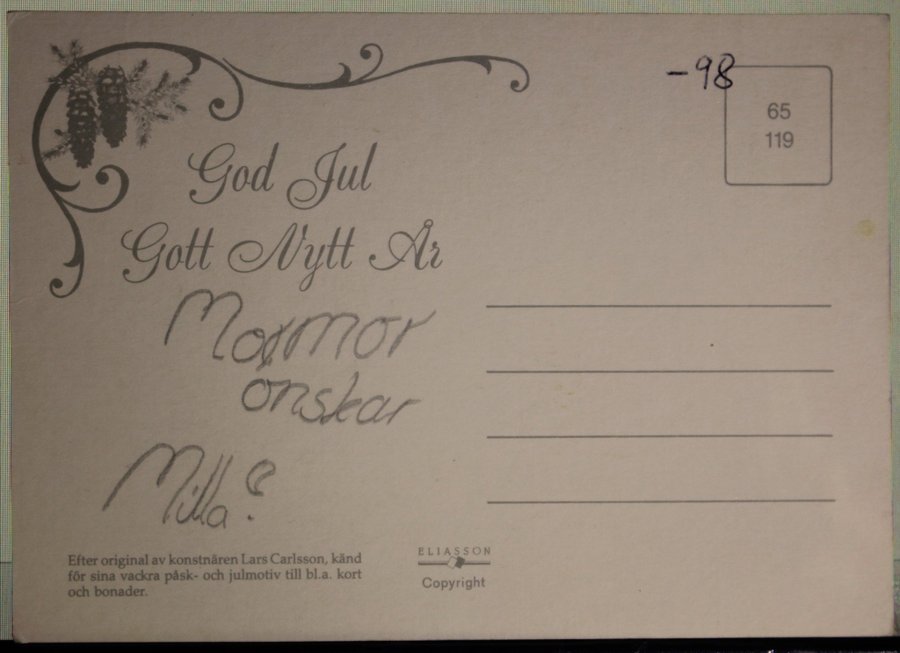 -98
65
119
God Jul
Gott Nytt År
Mormor
onskar
Milla?
Efter original av konstnären Lars Carlsson, känd
för sina vackra påsk- och julmotiv till bl.a. kort
och bonader.
ELIASSON
Copyright